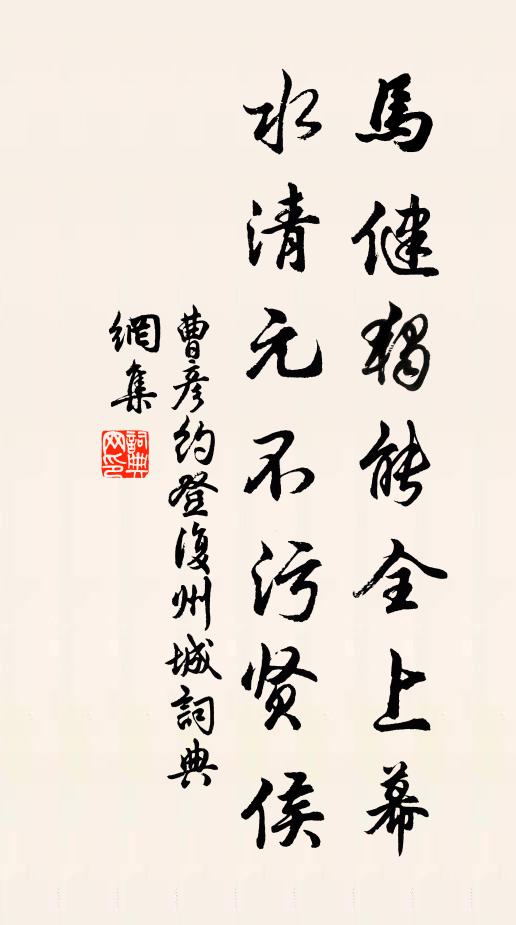 馬健獨能全上幕
水清元不污贤侯
曹彦約登復州城詞典
網集
詞典網印